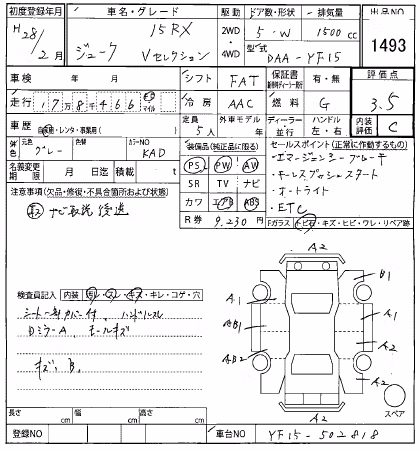 初度登録年月 車名・グレード 駆動 ドア数・形状 排気量 出品NO
H28/2月 ジューク 15RX Vセレクション 2WD 4WD 5・W 1500cc 1493
型式 DAA-YF15
車検 年 月 シフト FAT 保証書 有・無 評価点
走行 178466 km マイル 冷房 AAC 燃料 G 3.5
車歴 自家用・レンタ・事業用( ) 定員 5人 外車モデル年 年 ディーラー 並行 ハンドル 左・右 内装評価 C
元色 グレー 色替 カラーNO KAD 装備品(純正品に限る) セールスポイント(正常に作動するもの)
名義変更期限 月 日迄 積載 t PS PW AW ・エマージェンシーブレーキ
注意事項(欠品・修復・不具合箇所および状態) SR TV ナビ ・キーレスプッシュスタート
ナビ取説後送 カワ エアB ABS ・オートライト
・ETC
R券 9,230円 Fガラス トビ石・キズ・ヒビ・ワレ・リペア跡
検査員記入 内装 汚レ・スレ・キズ・キレ・コゲ・穴
シート一部カバー付、ハンドルスレ
DミラーA、モールキズ
キズ、B、
A2
B1
A1
A1
AB1
A2
AB2
A2
スペア
A2
長さ cm 幅 cm 高さ cm
登録NO 車台NO YF15-502818